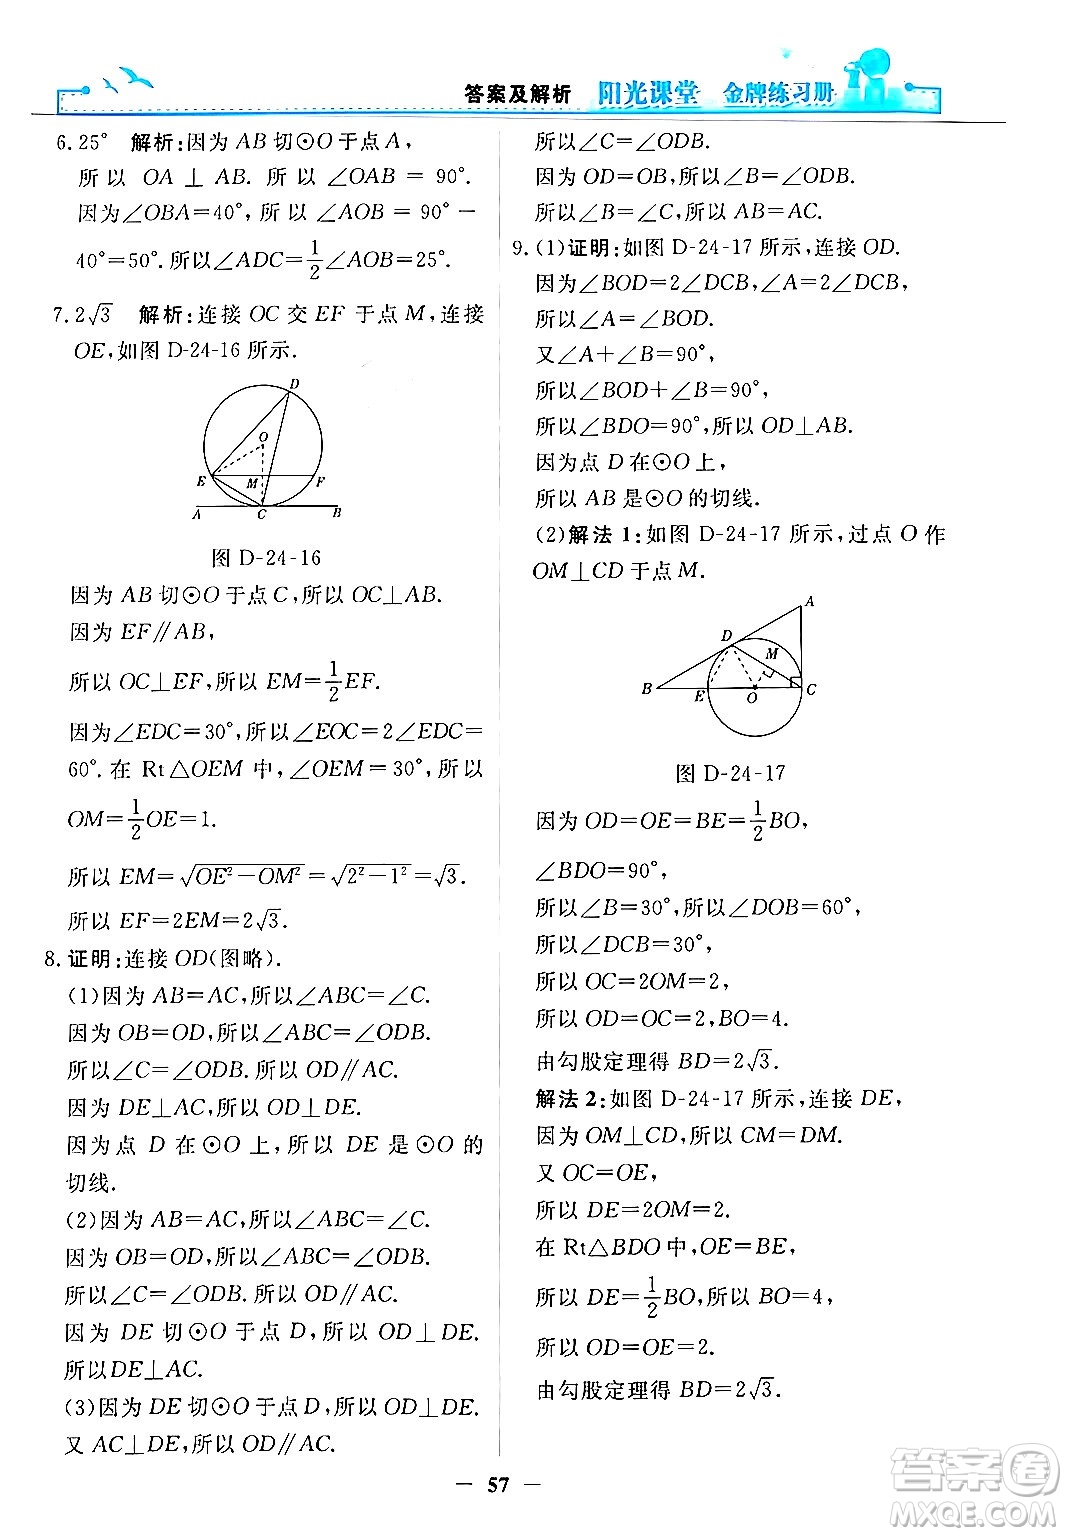 答案及解析 阳光课堂 金牌练习册
6.25° 解析:因为AB切⊙O于点A,
所以 OA⊥AB. 所以∠OAB=90°.
因为∠OBA=40°,所以∠AOB=90°−
40°=50°.所以∠ADC=1/2∠AOB=25°.
7.2√3 解析:连接OC交EF于点M,连接
OE,如图D-24-16所示.
D
O
E
M
F
A
C
B
图 D-24-16
因为AB切⊙O于点C,所以OC⊥AB.
因为EF∥AB,
所以OC⊥EF,所以EM=1/2EF.
因为∠EDC=30°,所以∠EOC=2∠EDC=
60°.在Rt△OEM中,∠OEM=30°,所以
OM=1/2OE=1.
所以EM=√(OE²−OM²)=√(2²−1²)=√3.
所以EF=2EM=2√3.
8.证明:连接OD(图略).
(1)因为AB=AC,所以∠ABC=∠C.
因为OB=OD,所以∠ABC=∠ODB.
所以∠C=∠ODB.所以OD∥AC.
因为DE⊥AC,所以OD⊥DE.
因为点D在⊙O上,所以DE是⊙O的
切线.
(2)因为AB=AC,所以∠ABC=∠C.
因为OB=OD,所以∠ABC=∠ODB.
所以∠C=∠ODB.所以OD∥AC.
因为DE切⊙O于点D,所以OD⊥DE.
所以DE⊥AC.
(3)因为DE切⊙O于点D,所以OD⊥DE.
又AC⊥DE,所以OD∥AC.
所以∠C=∠ODB.
因为OD=OB,所以∠B=∠ODB.
所以∠B=∠C,所以AB=AC.
9.(1)证明:如图D-24-17所示,连接OD.
因为∠BOD=2∠DCB,∠A=2∠DCB,
所以∠A=∠BOD.
又∠A+∠B=90°,
所以∠BOD+∠B=90°,
所以∠BDO=90°,所以OD⊥AB.
因为点D在⊙O上,
所以AB是⊙O的切线.
(2)解法1:如图D-24-17所示,过点O作
OM⊥CD于点M.
A
D
M
B
E
O
C
图 D-24-17
因为OD=OE=BE=1/2BO,
∠BDO=90°,
所以∠B=30°,所以∠DOB=60°,
所以∠DCB=30°,
所以OC=2OM=2,
所以OD=OC=2,BO=4.
由勾股定理得BD=2√3.
解法2:如图D-24-17所示,连接DE,
因为OM⊥CD,所以CM=DM.
又OC=OE,
所以DE=2OM=2.
在Rt△BDO中,OE=BE,
所以DE=1/2BO,所以BO=4,
所以OD=OE=2.
由勾股定理得BD=2√3.
— 57 —
答案圈
MXQE.COM